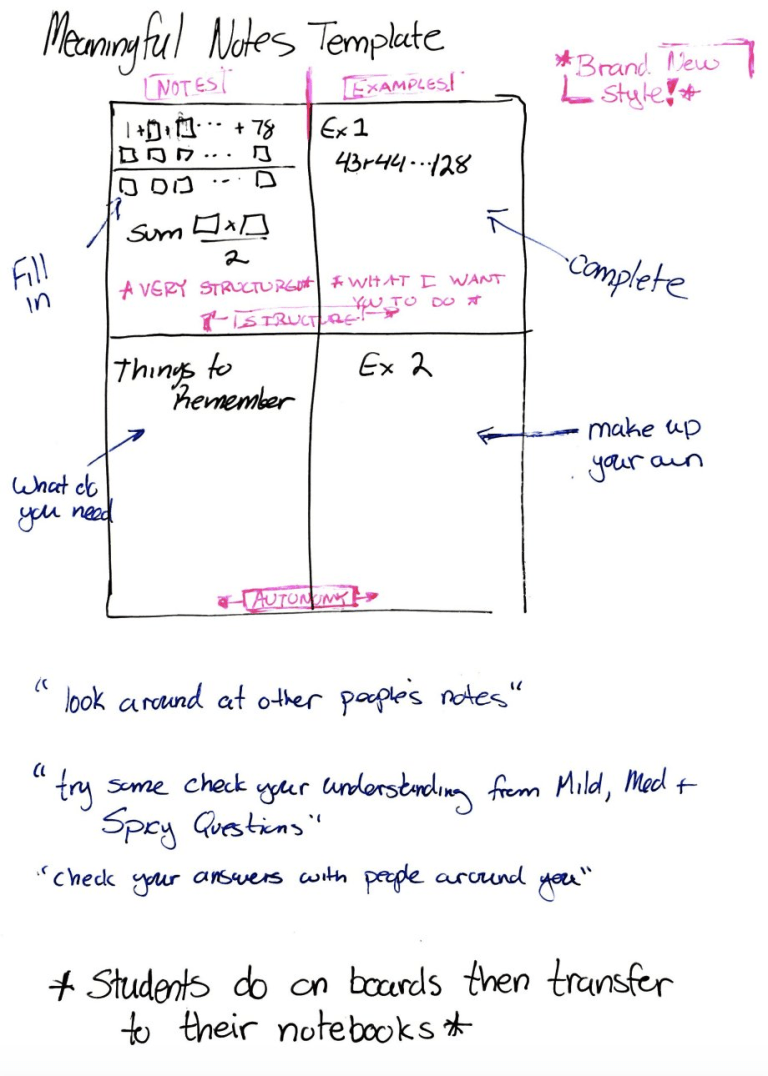 Meaningful Notes Template
*Brand New
Style!*
NOTES
EXAMPLES!
1+□+□... + 78
□ □ □ ... □
□ □ □ ... □
Sum □x□
2
Fill
in
*VERY STRUCTURED*
Ex 1
43+44...128
complete
*WHAT I WANT
YOU TO DO*
STRUCTURE!
Things to
Remember
What do
you need
Ex 2
make up
your own
AUTONOMY
"look around at other people's notes"
"try some check your understanding from Mild, Med +
Spicy Questions"
"check your answers with people around you"
* Students do on boards then transfer
to their notebooks *